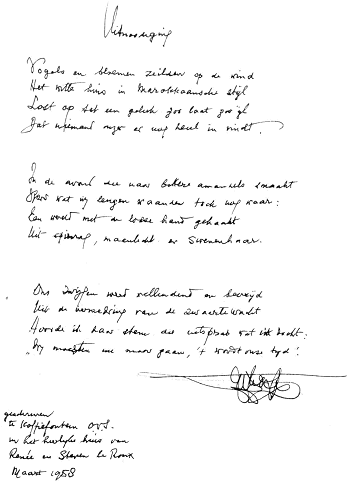 Uitnodiging
Vogels en bloemen zeilden op de wind
Het witte huis in Marokkaansche stijl
Lost op tot een
Dat niemand er nog heul in vindt.
In de avond die naar bittere amandels smaakt
wat wij leugen waanden toch nog waar:
Een woord met de losse hand gehaakt
Uit spinrag, maanlicht en Sirenenhaar.
Ons zwijgen werd volkomen en bevrijd
Uit de van de zwaarte wacht
Hoorde ik haar stem die uitsprak wat ik dacht:
„Wij moesten nu maar gaan, 't wordt onze tijd".
geschreven
te Koffiefontein O.V.S.
in het heerlijke huis van
Renée en Steven le Roux
Maart 1958